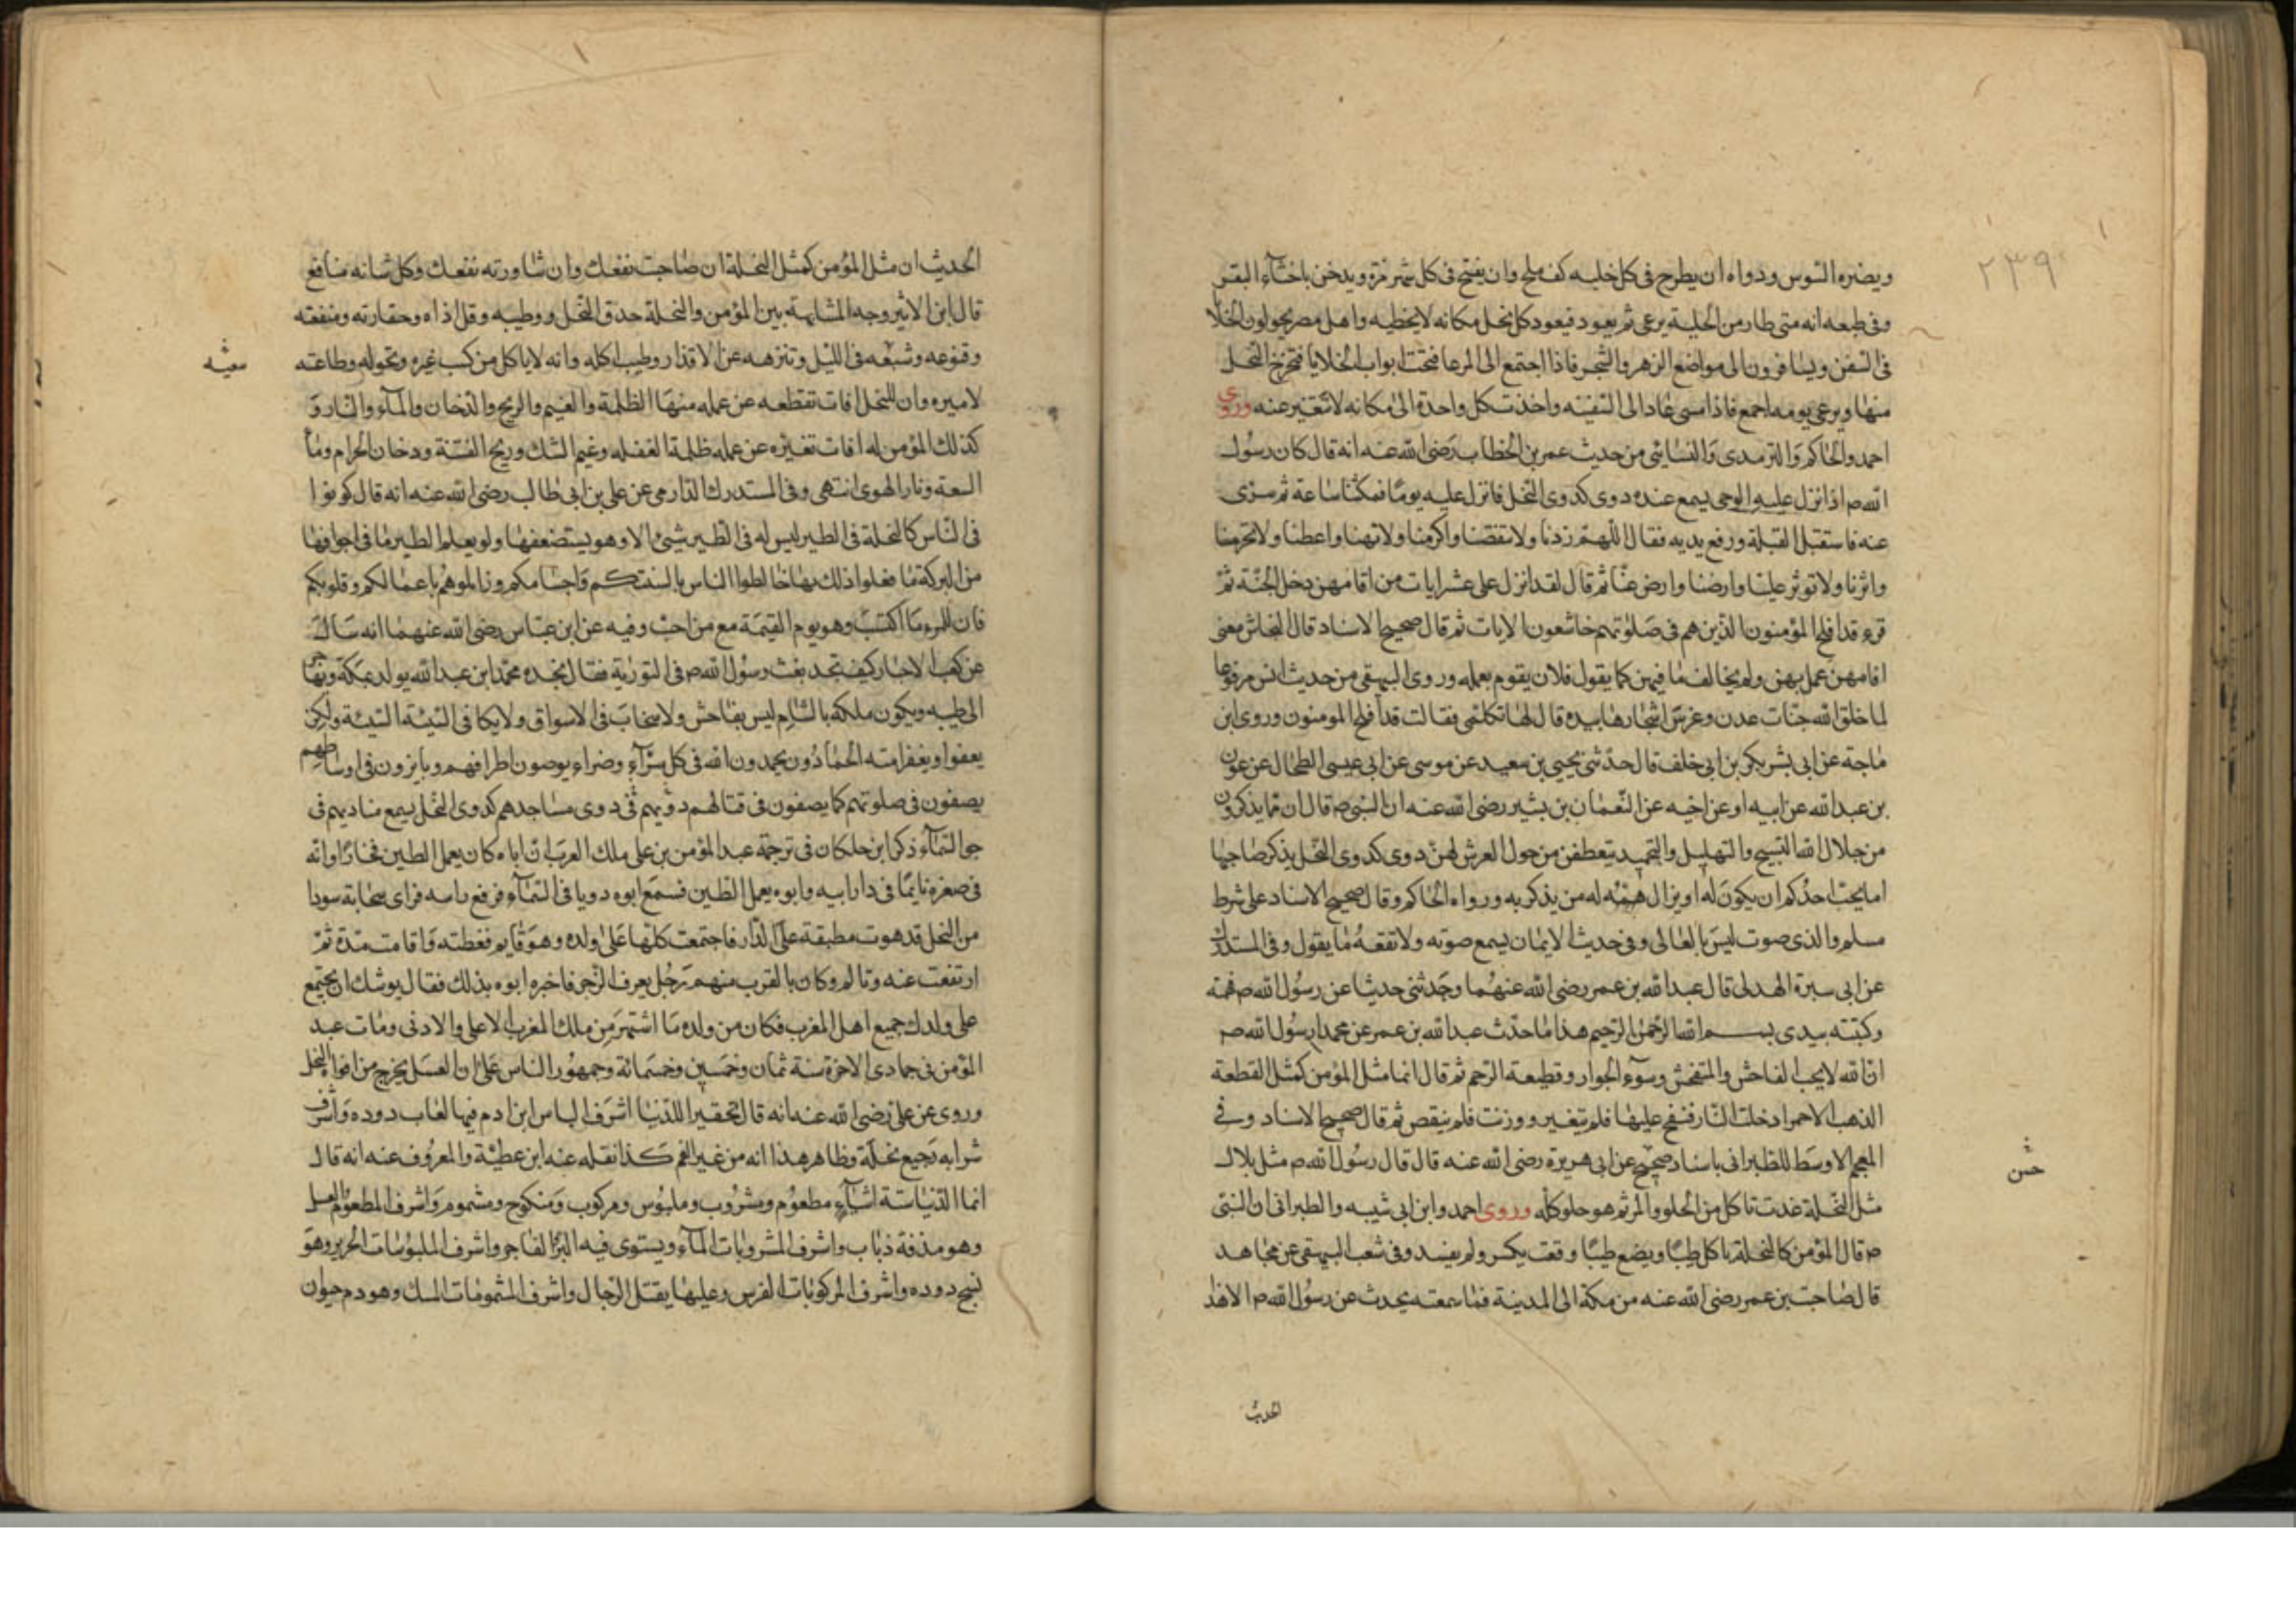 ٢٣٩
ويضره السوس ودواه ان يطرح في كل خليه كف ملح وان يفتح في كل شهر مرة ويدخن باخثآء البقر
وفي طبعه انه متى طار من الخلية يرعى ثم يعود فيعود كل نحل مكانه لا يخطيه واهل مصر يحولون الخلا
في السفن ويسافرون الى مواضع الزهر والشجر فاذا اجتمع الى المرعا فتحت ابواب الخلايا فتخرج النحل
منها ويرعى يومه اجمع فاذا امسى عاد الى السفينه واخذت كل واحدة الى مكانه لا تتغير عنه وروى
احمد والحاكم والترمدى والنسايئى من حديث عمر بن الخطاب رضى الله عنه انه قال كان رسول
الله صم اذا نزل عليه الوحى يسمع عنده دوى كدوى النحل فانزل عليه يوما فمكثنا ساعة ثم سرى
عنه فاستقبل القبلة ورفع يديه فقال اللهم زدنا ولا تنقصنا واكرمنا ولا تهنا واعطنا ولا تحرمنا
واثرنا ولا توثر علينا وارضنا وارض عنا ثم قال لقد انزل على عشر ايات من اقامهن دخل الجنة ثم
قرء قد افلح المؤمنون الذين هم في صلوتهم خاشعون الايات ثم قال صحيح الاسناد قال النحاس معنى
اقامهن عمل بهن ولم يخالف ما فيهن كما يقول فلان يقوم بعمله وروى البيهقى من حديث انس مرفوعا
لما خلق الله جنات عدن وغرس اشجارها بيده قال لها تكلمى فقالت قد افلح المومنون وروى ابن
ماجة عن ابى بشر بكر بن ابى خلف قال حدثنى يحيى بن سعيد عن موسى عن ابى عيسى الطحال عن عون
بن عبد الله عن ابيه او عن اخيه عن النعمان بن بشير رضى الله عنه ان النبى صم قال ان مما يذكرون
من جلال الله التسبيح والتهليل والتحميد يتعطفن من حول العرش لهن دوى كدوى النحل يذكر صاحبها
اما يحب احدكم ان يكون له او يزال له من يذكر به ورواه الحاكم وقال صحيح الاسناد على شرط
مسلم والذى صوت ليس بالعالى وفي حديث الايمان يسمع صوته ولا تفقه ما يقول وفي المستدرك
عن ابى سبرة الهدلى قال عبد الله بن عمر رضى الله عنهما وحدثنى حديثا عن رسول الله صم فهمته
وكتبته بيدى بسم الله الرحمن الرحيم هذا ما حدث عبد الله بن عمر عن محمد رسول الله صم
ان الله لا يحب الفاحش والمتفحش وسوء الجوار وقطيعة الرحم ثم قال انما مثل المؤمن كمثل القطعة
الذهب الاحمر ادخلت النار فنفخ عليها فلم يتغير ووزنت فلم ينقص ثم قال صحيح الاسناد وفي
المعجم الاوسط للطبرانى باسناد صحيح عن ابى هريرة رضى الله عنه قال قال رسول الله صم مثل بلال
مثل النحلة غدت تاكل من الحلو والمر ثم هو حلو كله وروى احمد وابن ابى شيبه والطبرانى ان النبى
صم قال المؤمن كالنحلة تاكل طيبا ويضع طيبا وقعت يكسر ولم يفسد وفي شعب البيهقى عن مجاهد
قال صاحبت بن عمر رضى الله عنه من مكة الى المدينة فما سمعته يحدث عن رسول الله صم الا هذا
حسن
الحديث
الحديث ان مثل المؤمن كمثل النحلة ان صاحبت نفعك وان شاورته نفعك وكل شانه منافع
قال ابن الاثير وجه المشابهة بين المؤمن والنحلة حدق النحل ووطيبه وقل اذاه وحقارته ومنفقته
وقنوعه وشبعه في الليل وتنزهه عن الاقذار وطيب اكله وانه لا ياكل من كسب غيره وتحوله وطاعته
لاميره وان للنحل افات تقطعه عن عمله منها الظلمة والغيم والريح والدخان والمآء والنار و
كذلك المؤمن له افات تغيره عن عمله ظلمة الغفله وغيم الشك وريح الفتنة ودخان الحرام وما
السعة ونار الهوى انتهى وفي المستدرك الدارمى عن على بن ابى طالب رضى الله عنه انه قال كونوا
في الناس كالنحلة في الطير ليس له في الطير شيئ الا وهو يستضعفها ولو يعلم الطير ما في اجوافها
من البركة ما فعلوا ذلك بها خالطوا الناس بالسنتكم واجسامكم وزايلوهم باعمالكم وقلوبكم
فان للمرء ما اكتسب وهو يوم القيمة مع من احب وفيه عن ابن عباس رضى الله عنهما انه سال
عن كعب الاحبار كيف تجد بعث رسول الله صم في التورية فقال نجده محمد ابن عبد الله يولد بمكة
الى طيبه ويكون ملكه بالشام ليس بفاحش ولا سخاب في الاسواق ولا يكافى السيئة السيئة ولكن
يعفوا ويغفر امته الحمادون يحمدون الله في كل سرآء وضراء يوصون اطرافهم ويابزرون في اوساطهم
يصفون في صلوتهم كما يصفون في قتالهم دويهم في دوى مساجدهم كدوى النحل يسمع مناديهم في
جو السمآء ذكر ابن خلكان في ترجمة عبد المؤمن بن على ملك العرب ان اباه كان يعمل الطين فخارا وانه
في صغره نايما في دار ابيه وابوه يعمل الطين فسمع ابوه دويا في السمآء فرفع راسه فراى سحابة سودا
من النحل قد هوت مطبقة على الدار فاجتمعت كلها على ولده وهو قايم فغطته واقامت مدة ثم
ارتفعت عنه وتالم وكان بالقرب منهم رجل يعرف الزجر فاخبره ابوه بذلك فقال يوشك ان يجتمع
على ولدك جميع اهل المغرب فكان من ولده ما اشتهر من ملك المغرب الاعلى والادنى ومات عبد
المؤمن في جمادى الاخرة سنة ثمان وخمسين وخمسمائة وجمهور الناس على ان العسل يخرج من افواه النحل
وروى عن على رضى الله عنه انه قال تحقيرا للدنيا اشرف لباس ابن ادم فيها لعاب دوده واشرف
شرابه رجيع نحلة وظاهر هذا انه من غير الفم كذا نقله عنه ابن عطية والمعروف عنه انه قال
انما الدنيا ستة اشيآء مطعوم ومشروب وملبوس ومركوب ومنكوح ومشموم واشرف المطعوم العسل
وهو مذقة ذباب واشرف المشروبات المآء ويستوى فيه البر الفاجر واشرف الملبوسات الحرير وهو
نسج دوده واشرف المركوبات الفرس وعليها يقتل الرجال واشرف المشمومات المسك وهو دم حيوان